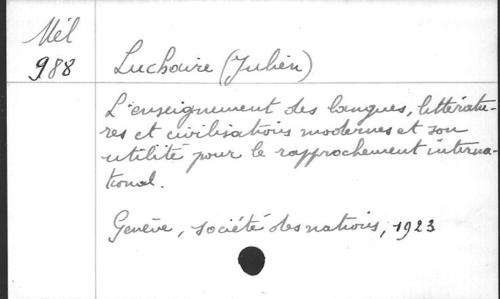 Mél
988
Luchaire (Julien)
L'enseignement des langues, littératu-
res et civilisations modernes et son
utilité pour le rapprochement interna-
tional.
Genève, société des nations, 1923